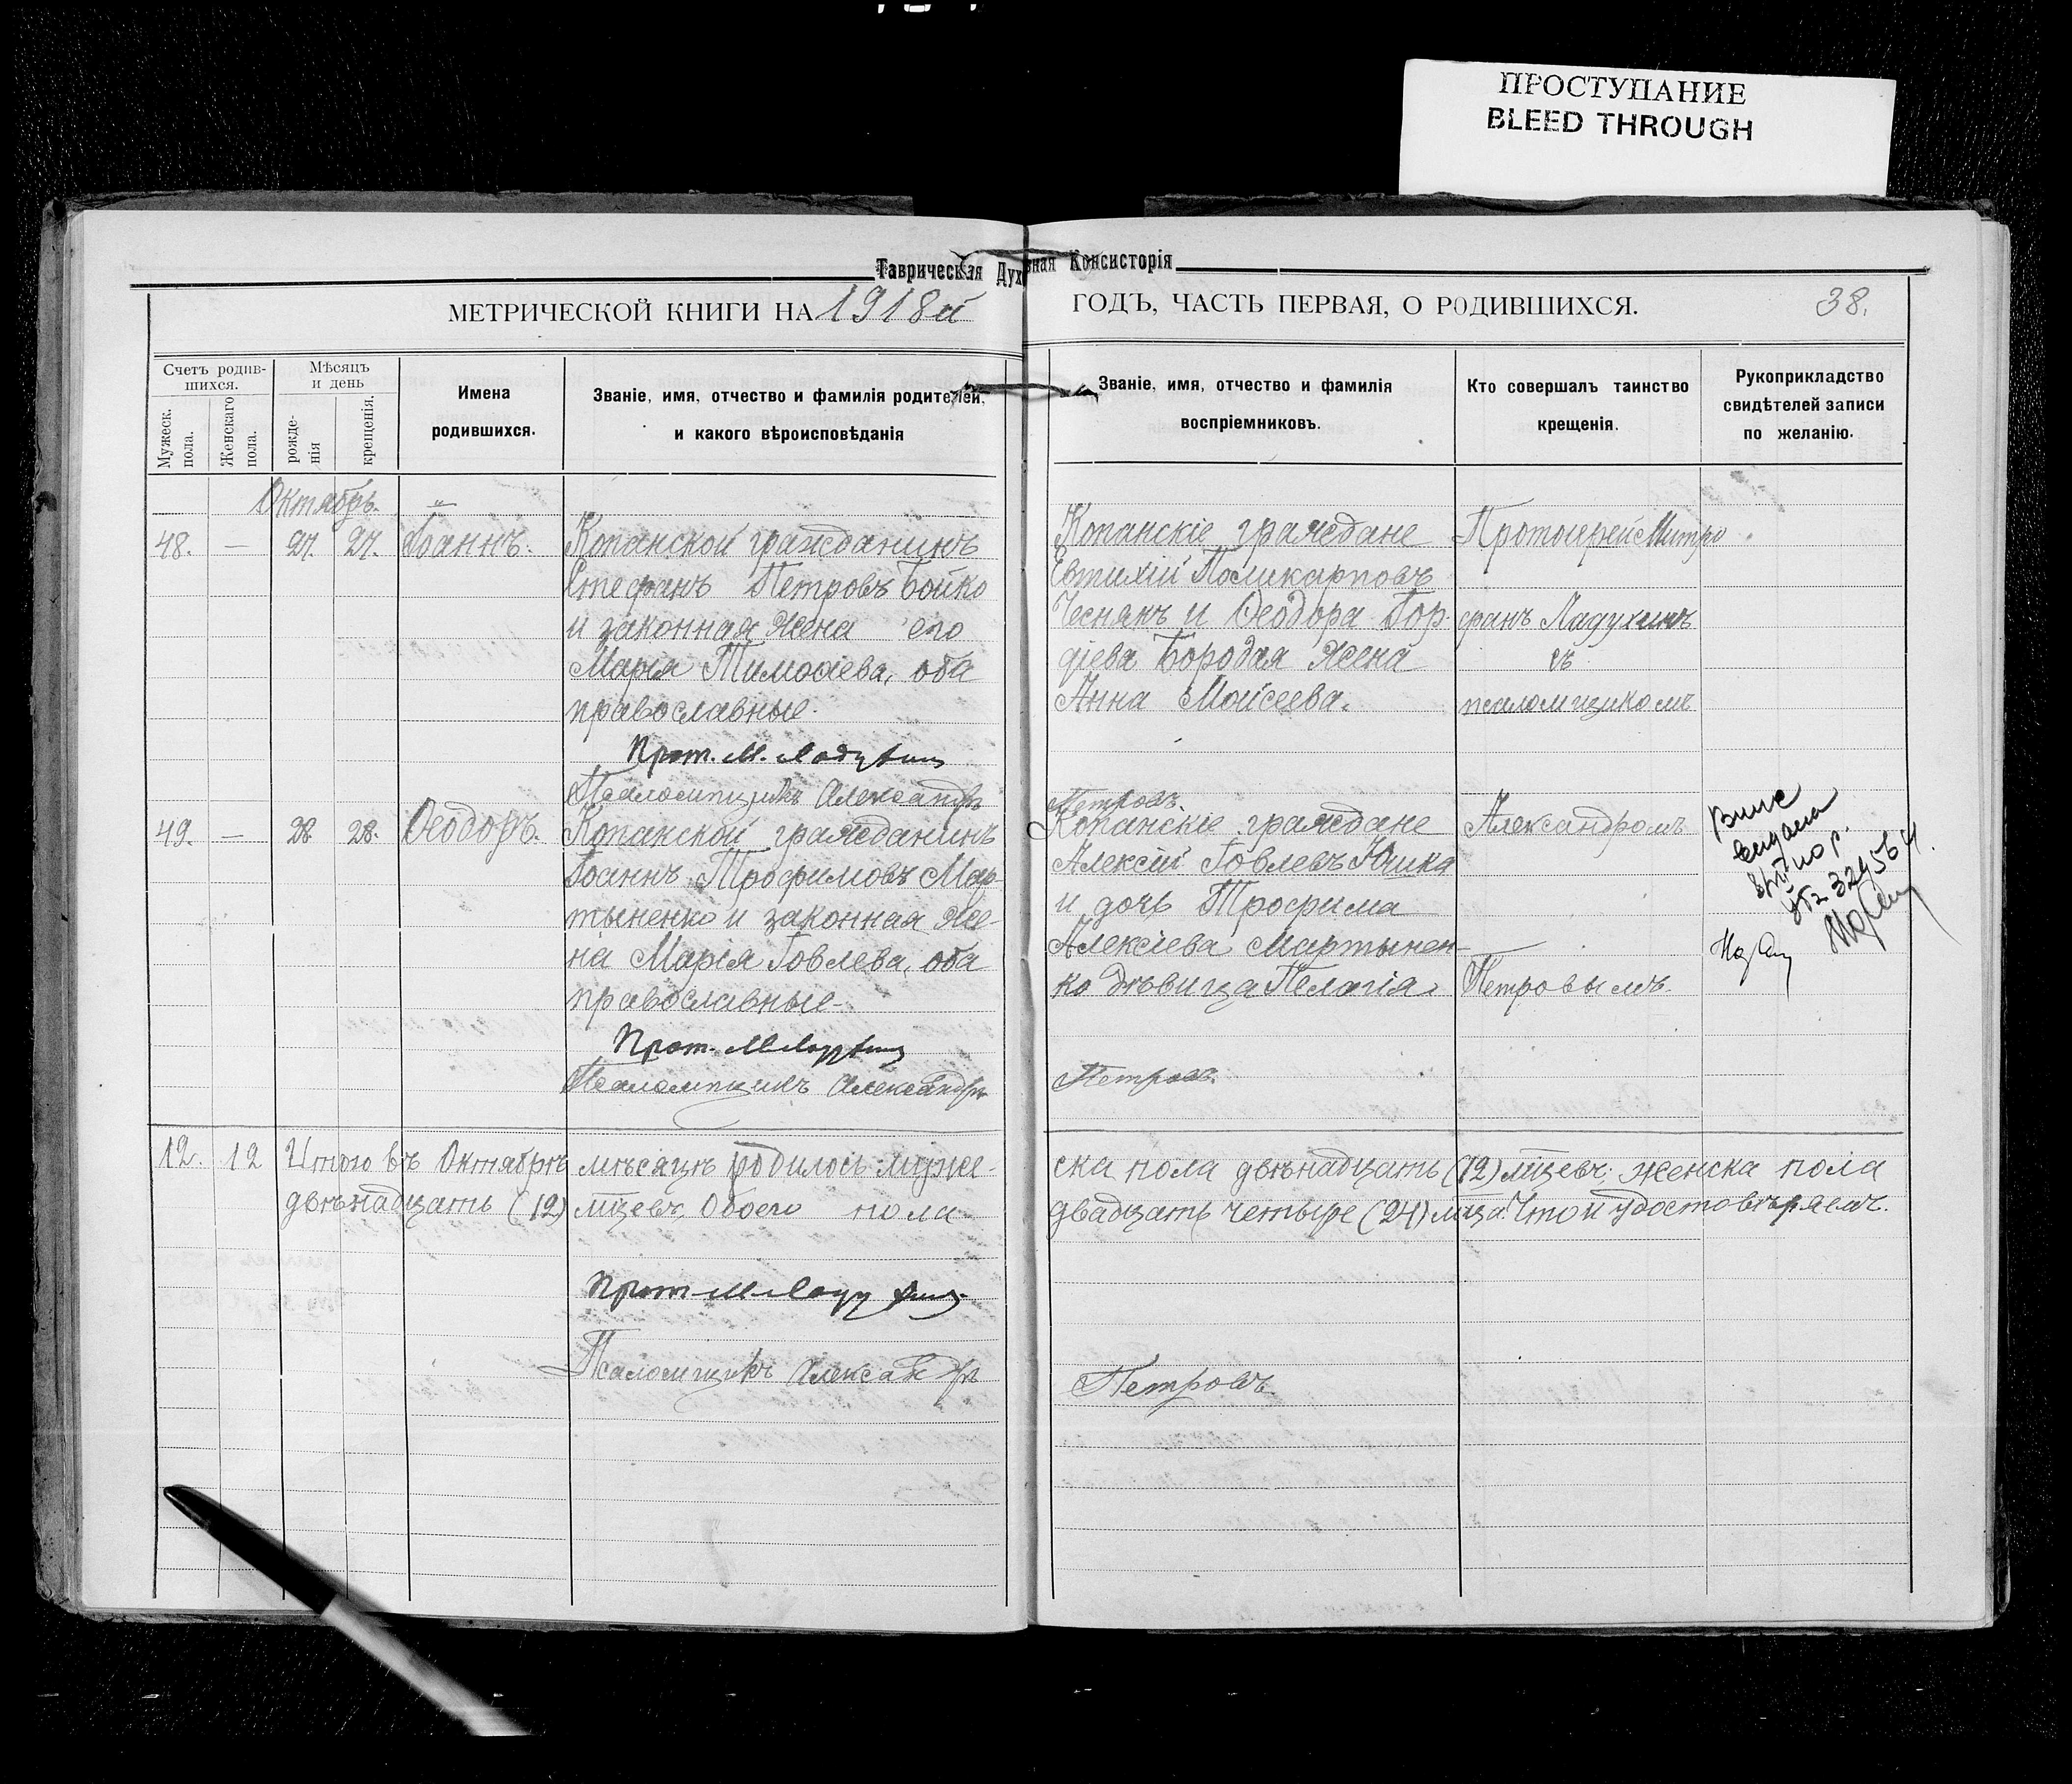 ПРОСТУПАНИЕ
BLEED THROUGH
Таврическая Духовная Консисторія
МЕТРИЧЕСКОЙ КНИГИ НА 1918й ГОДЪ, ЧАСТЬ ПЕРВАЯ, О РОДИВШИХСЯ. 38.
Счетъ родив-
шихся.
Мужеск.
пола.
Женскаго
пола.
Мѣсяцъ
и день
рожде-
нія
крещенія.
Имена
родившихся.
Званіе, имя, отчество и фамилія родителей,
и какого вѣроисповѣданія
Званіе, имя, отчество и фамилія
воспріемниковъ.
Кто совершалъ таинство
крещенія.
Рукоприкладство
свидѣтелей записи
по желанію.
Октябрь.
48. — 27. 27. Іоаннъ.
Копанской гражданинъ
Стефанъ Петровъ Бойко
и законная жена его
Марія Тимоѳіева, оба
православные.
Прот. М. Ладухинъ
Псаломщикъ Александръ
Петровъ.
Копанскіе граждане
Евтихій Поликарповъ
Чеснякъ и Ѳеодора Гор-
діева Бородая жена
Анна Моисеева.
Протоіерей Митро
фанъ Ладухинъ
съ
псаломщикомъ
49. — 28. 28. Ѳеодоръ.
Копанской гражданинъ
Іоаннъ Трофимовъ Мар-
тыненко и законная же-
на Марія Іовлева, оба
православные.
Прот. М Ладухинъ
Псаломщикъ Александръ
Петровъ.
Копанскіе граждане
Алексій Іовлевъ
и дочь Трофима
Алексіева Мартынен-
ко дѣвица Пелагія.
Александромъ
Петровымъ.
12. 12 Итого въ Октябрѣ мѣсяцѣ родилось муже-
ска пола двѣнадцать (12) лицевъ; женска пола
двѣнадцать (12) лицевъ. Обоего пола
двадцать четыре (24) лица. Что и удостовѣряемъ.
Прот М Ладухинъ
Псаломщикъ Александръ
Петровъ.